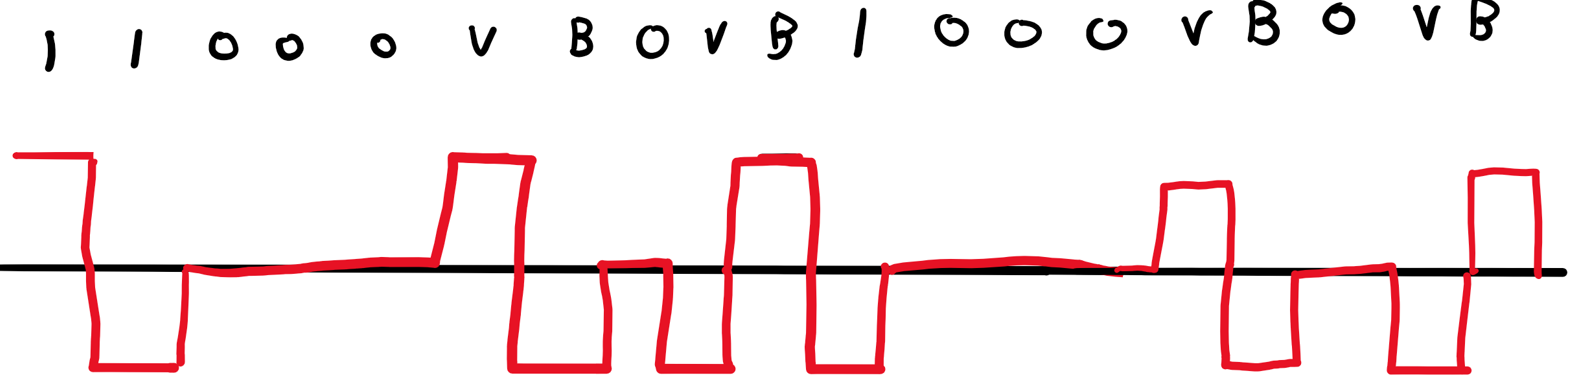 1 1 0 0 0 V B 0 V B 1 0 0 0 V B 0 V B